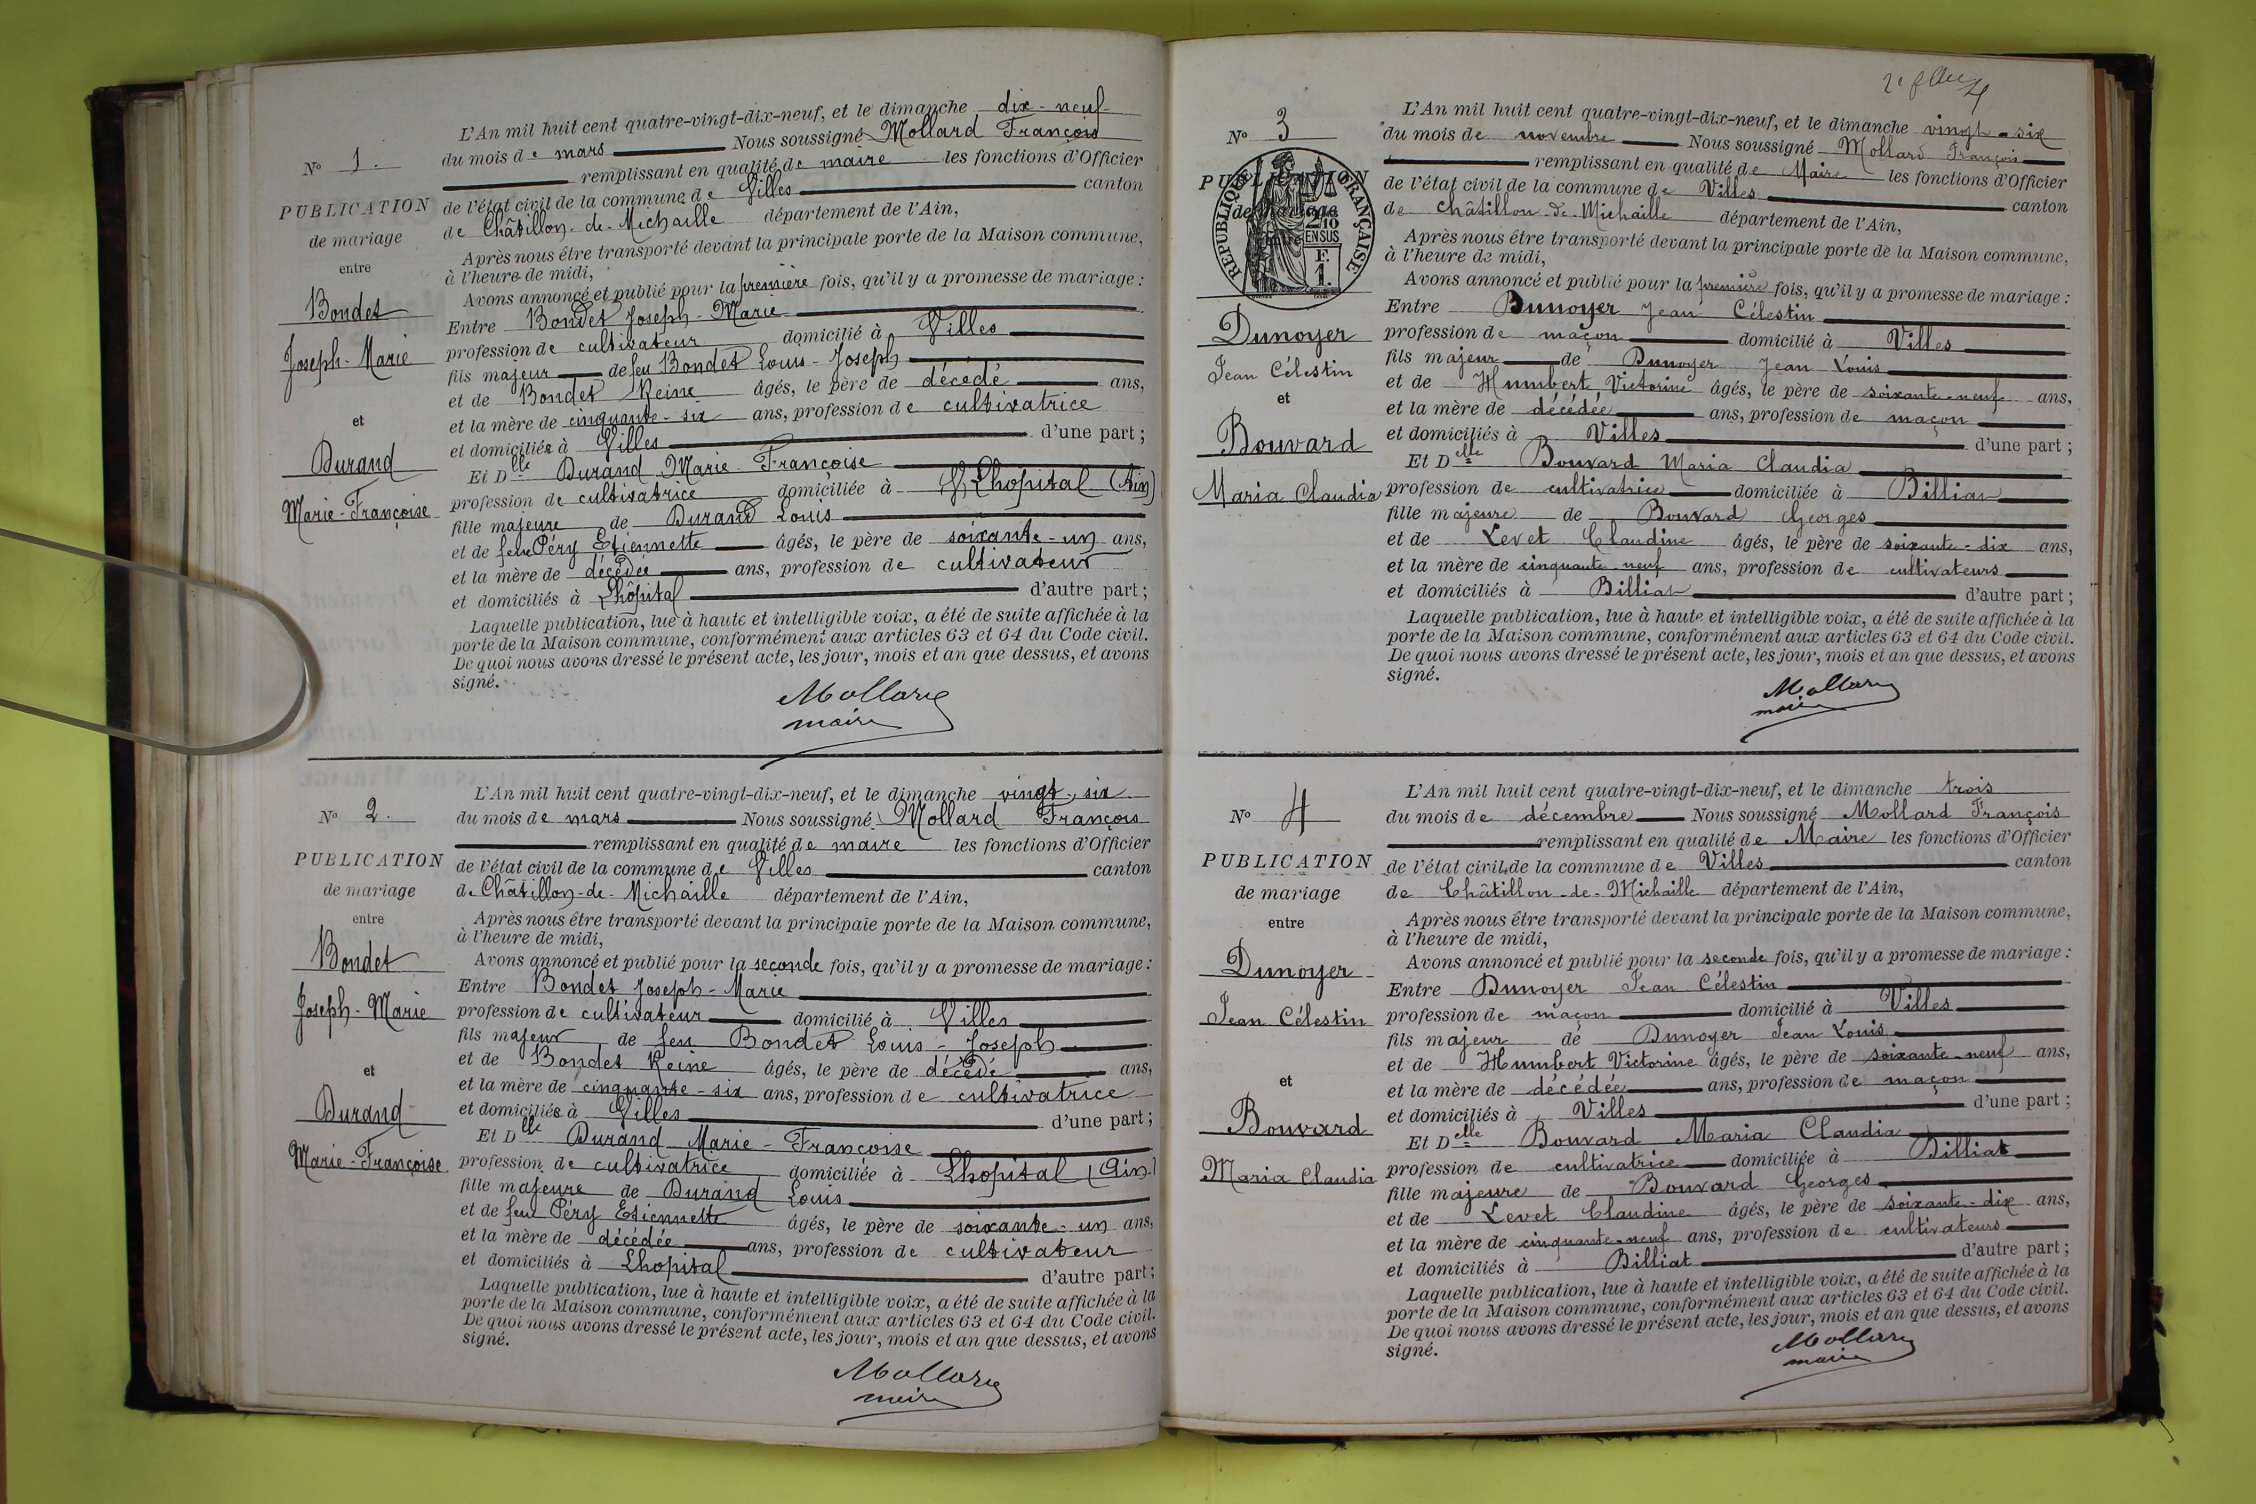 N° 1.
PUBLICATION
de mariage
entre
Bondet
Joseph-Marie
et
Durand
Marie-Françoise
L'An mil huit cent quatre-vingt-dix-neuf, et le dimanche dix-neuf
du mois de mars Nous soussigné Mollard François
remplissant en qualité de maire les fonctions d'Officier
de l'état civil de la commune de Villes canton
de Châtillon-de-Michaille département de l'Ain,
Après nous être transporté devant la principale porte de la Maison commune,
à l'heure de midi,
Avons annoncé et publié pour la première fois, qu'il y a promesse de mariage :
Entre Bondet Joseph-Marie
profession de cultivateur domicilié à Villes
fils majeur de feu Bondet Louis-Joseph
et de Bondet Reine âgés, le père de décédé ans,
et la mère de cinquante-six ans, profession de cultivatrice
et domiciliés à Villes d'une part ;
Et Dlle Durand Marie-Françoise
profession de cultivatrice domiciliée à Lhopital (Ain)
fille majeure de Durand Louis
et de feue Péry Etiennette âgés, le père de soixante-un ans,
et la mère de décédée ans, profession de cultivateur
et domiciliés à Lhôpital d'autre part ;
Laquelle publication, lue à haute et intelligible voix, a été de suite affichée à la
porte de la Maison commune, conformément aux articles 63 et 64 du Code civil.
De quoi nous avons dressé le présent acte, les jour, mois et an que dessus, et avons
signé.
Mollard
maire
N° 2.
PUBLICATION
de mariage
entre
Bondet
Joseph-Marie
et
Durand
Marie-Françoise
L'An mil huit cent quatre-vingt-dix-neuf, et le dimanche vingt-six
du mois de mars Nous soussigné Mollard François
remplissant en qualité de maire les fonctions d'Officier
de l'état civil de la commune de Villes canton
de Châtillon-de-Michaille département de l'Ain,
Après nous être transporté devant la principale porte de la Maison commune,
à l'heure de midi,
Avons annoncé et publié pour la seconde fois, qu'il y a promesse de mariage :
Entre Bondet Joseph-Marie
profession de cultivateur domicilié à Villes
fils majeur de feu Bondet Louis-Joseph
et de Bondet Reine âgés, le père de décédé ans,
et la mère de cinquante-six ans, profession de cultivatrice
et domiciliés à Villes d'une part ;
Et Dlle Durand Marie-Françoise
profession de cultivatrice domiciliée à Lhopital (Ain)
fille majeure de Durand Louis
et de feu Péry Etiennette âgés, le père de soixante-un ans,
et la mère de décédée ans, profession de cultivateur
et domiciliés à Lhopital d'autre part ;
Laquelle publication, lue à haute et intelligible voix, a été de suite affichée à la
porte de la Maison commune, conformément aux articles 63 et 64 du Code civil.
De quoi nous avons dressé le présent acte, les jour, mois et an que dessus, et avons
signé.
Mollard
maire
N° 3
PUBLICATION
de mariage
entre
RÉPUBLIQUE FRANÇAISE
2/10
EN SUS
F.
1.
Dunoyer
Jean Célestin
et
Bouvard
Maria Claudia
L'An mil huit cent quatre-vingt-dix-neuf, et le dimanche vingt-six
du mois de novembre Nous soussigné Mollard François
remplissant en qualité de Maire les fonctions d'Officier
de l'état civil de la commune de Villes canton
de Châtillon-de-Michaille département de l'Ain,
Après nous être transporté devant la principale porte de la Maison commune,
à l'heure de midi,
Avons annoncé et publié pour la première fois, qu'il y a promesse de mariage :
Entre Dunoyer Jean Célestin
profession de maçon domicilié à Villes
fils majeur de Dunoyer Jean Louis
et de Humbert Victorine âgés, le père de soixante-neuf ans,
et la mère de décédée ans, profession de maçon
et domiciliés à Villes d'une part ;
Et Delle Bouvard Maria Claudia
profession de cultivatrice domiciliée à Billiat
fille majeure de Bouvard Georges
et de Levet Claudine âgés, le père de soixante-dix ans,
et la mère de cinquante-neuf ans, profession de cultivateurs
et domiciliés à Billiat d'autre part ;
Laquelle publication, lue à haute et intelligible voix, a été de suite affichée à la
porte de la Maison commune, conformément aux articles 63 et 64 du Code civil.
De quoi nous avons dressé le présent acte, les jour, mois et an que dessus, et avons
signé.
Mollard
maire
N° 4
PUBLICATION
de mariage
entre
Dunoyer
Jean Célestin
et
Bouvard
Maria Claudia
L'An mil huit cent quatre-vingt-dix-neuf, et le dimanche trois
du mois de décembre Nous soussigné Mollard François
remplissant en qualité de Maire les fonctions d'Officier
de l'état civil de la commune de Villes canton
de Châtillon-de-Michaille département de l'Ain,
Après nous être transporté devant la principale porte de la Maison commune,
à l'heure de midi,
Avons annoncé et publié pour la seconde fois, qu'il y a promesse de mariage :
Entre Dunoyer Jean Célestin
profession de maçon domicilié à Villes
fils majeur de Dunoyer Jean Louis
et de Humbert Victorine âgés, le père de soixante-neuf ans,
et la mère de décédée ans, profession de maçon
et domiciliés à Villes d'une part ;
Et Delle Bouvard Maria Claudia
profession de cultivatrice domiciliée à Billiat
fille majeure de Bouvard Georges
et de Levet Claudine âgés, le père de soixante-dix ans,
et la mère de cinquante-neuf ans, profession de cultivateurs
et domiciliés à Billiat d'autre part ;
Laquelle publication, lue à haute et intelligible voix, a été de suite affichée à la
porte de la Maison commune, conformément aux articles 63 et 64 du Code civil.
De quoi nous avons dressé le présent acte, les jour, mois et an que dessus, et avons
signé.
Mollard
maire